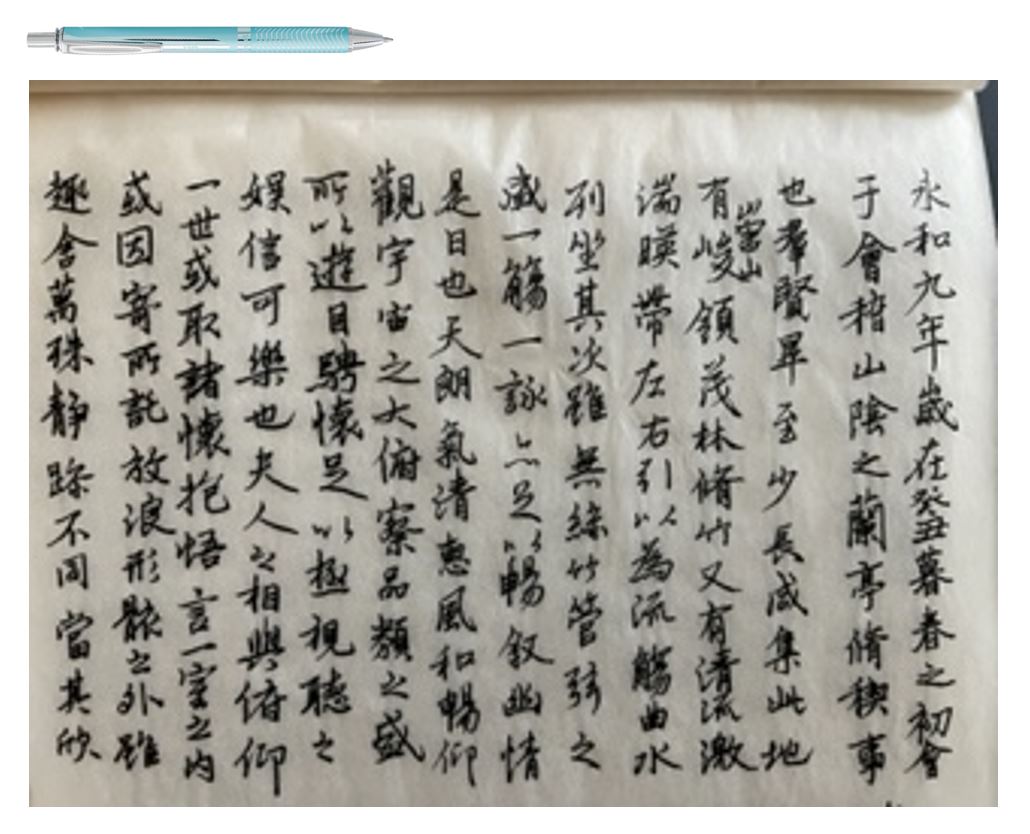 永和九年歲在癸丑暮春之初會
于會稽山陰之蘭亭脩稧事
也羣賢畢至少長咸集此地
有崇山峻領茂林脩竹又有清流激
湍暎帶左右引以為流觴曲水
列坐其次雖無絲竹管弦之
盛一觴一詠亦足以暢叙幽情
是日也天朗氣清惠風和暢仰
觀宇宙之大俯察品類之盛
所以遊目騁懷足以極視聽之
娛信可樂也夫人之相與俯仰
一世或取諸懷抱悟言一室之内
或因寄所託放浪形骸之外雖
趣舍萬殊静躁不同當其欣